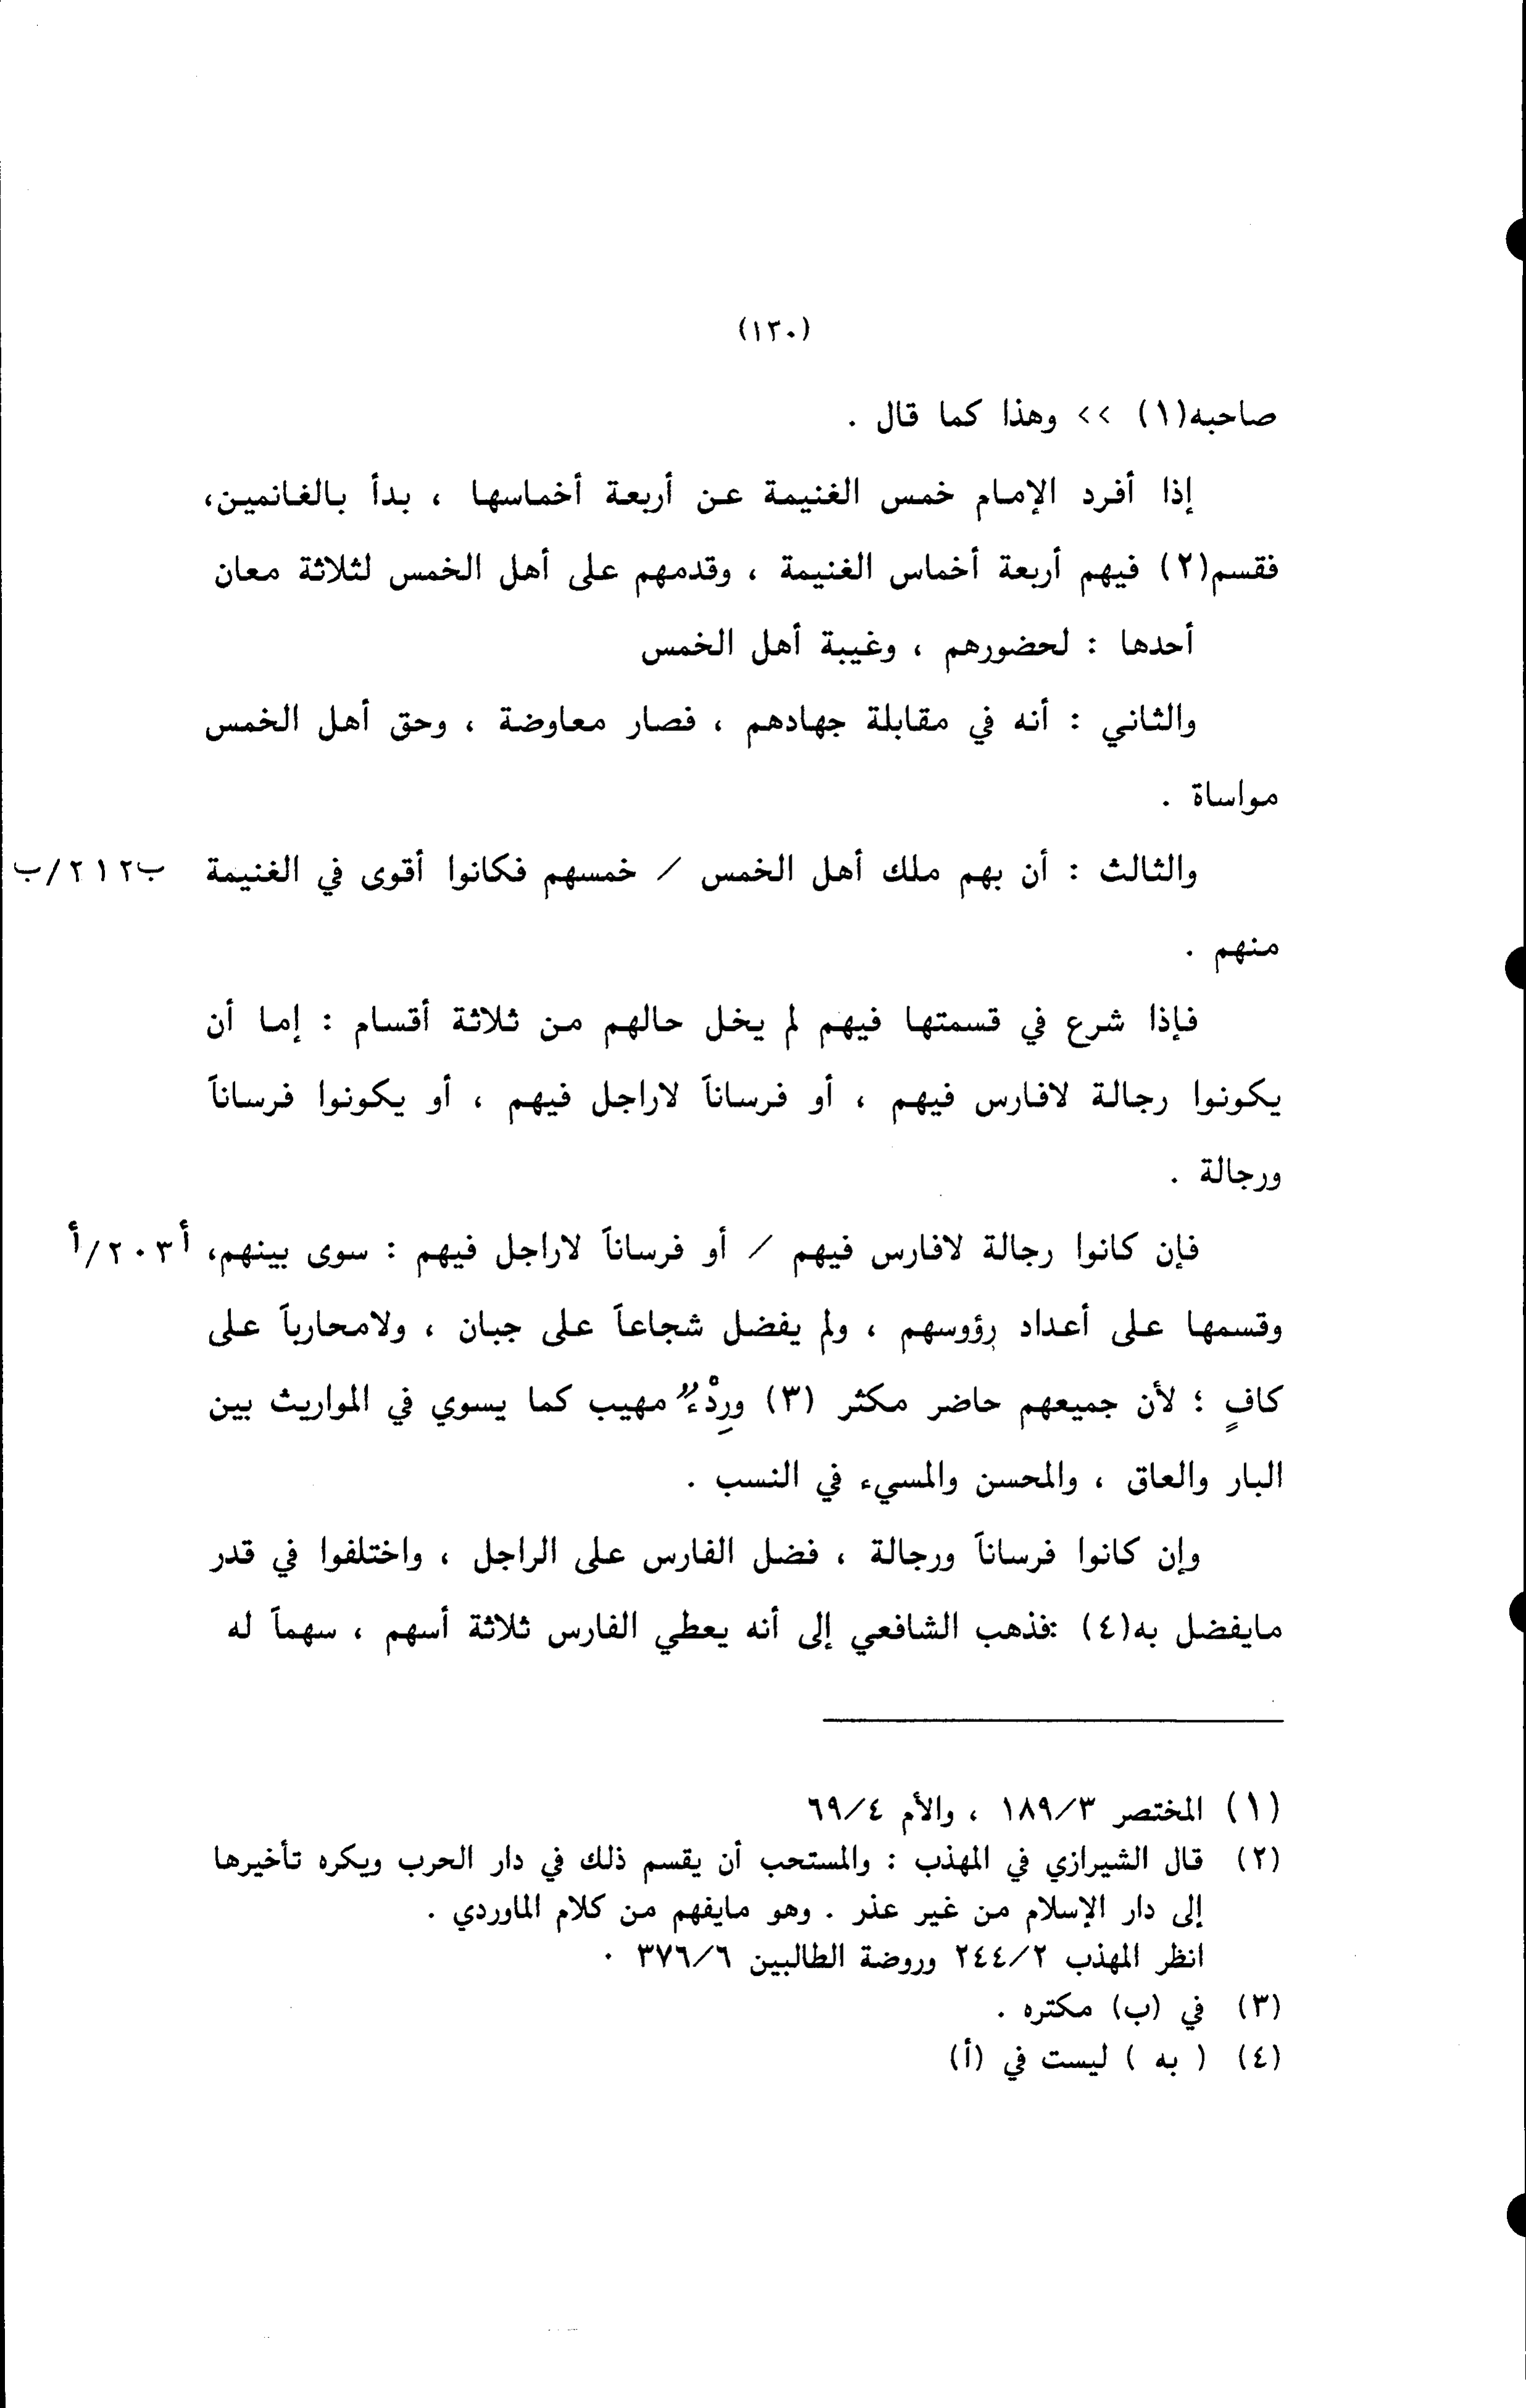 (١٣٠)
صاحبه(١) >> وهذا كما قال .
إذا أفرد الإمام خمس الغنيمة عن أربعة أخماسها ، بدأ بالغانمين،
فقسم(٢) فيهم أربعة أخماس الغنيمة ، وقدمهم على أهل الخمس لثلاثة معان
أحدها : لحضورهم ، وغيبة أهل الخمس
والثاني : أنه في مقابلة جهادهم ، فصار معاوضة ، وحق أهل الخمس
مواساة .
والثالث : أن بهم ملك أهل الخمس / خمسهم فكانوا أقوى في الغنيمة ب٢١٢/ب
منهم .
فإذا شرع في قسمتها فيهم لم يخل حالهم من ثلاثة أقسام : إما أن
يكونوا رجالة لافارس فيهم ، أو فرساناً لاراجل فيهم ، أو يكونوا فرساناً
ورجالة .
فإن كانوا رجالة لافارس فيهم / أو فرساناً لاراجل فيهم : سوى بينهم، أ٢٠٣/أ
وقسمها على أعداد رؤوسهم ، ولم يفضل شجاعاً على جبان ، ولامحارباً على
كافٍ ؛ لأن جميعهم حاضر مكثر (٣) ورِدْءٌ مهيب كما يسوي في المواريث بين
البار والعاق ، والمحسن والمسيء في النسب .
وإن كانوا فرساناً ورجالة ، فضل الفارس على الراجل ، واختلفوا في قدر
مايفضل به(٤) :فذهب الشافعي إلى أنه يعطي الفارس ثلاثة أسهم ، سهماً له
(١) المختصر ١٨٩/٣ ، والأم ٦٩/٤
(٢) قال الشيرازي في المهذب : والمستحب أن يقسم ذلك في دار الحرب ويكره تأخيرها
إلى دار الإسلام من غير عذر . وهو مايفهم من كلام الماوردي .
انظر المهذب ٢٤٤/٢ وروضة الطالبين ٣٧٦/٦ .
(٣) في (ب) مكتره .
(٤) ( به ) ليست في (أ)